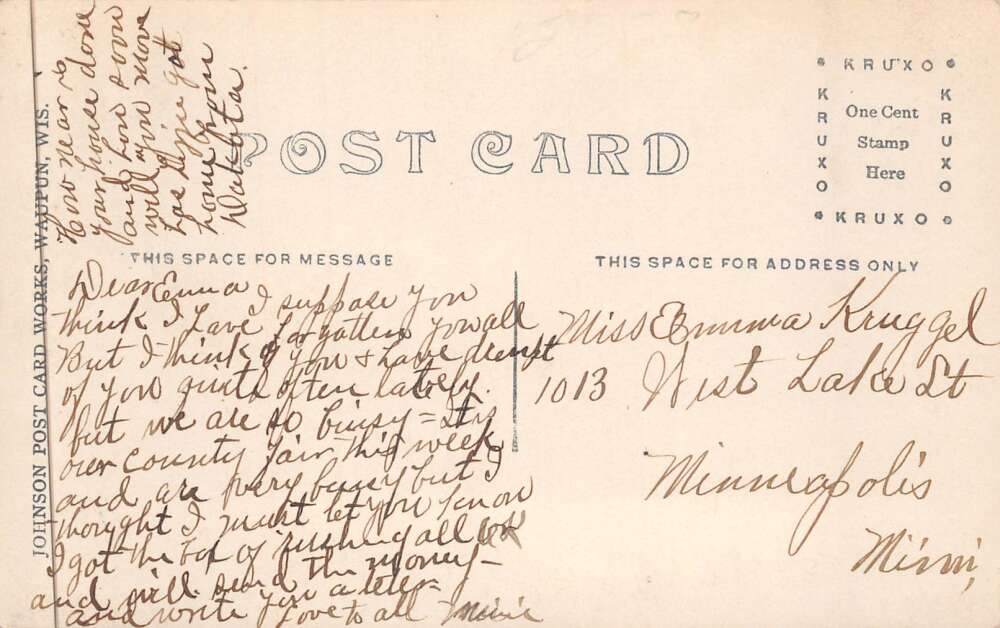 How near is
your house done
and how soon
will you move
has Lizzie got
home from
Dakota.
JOHNSON POST CARD WORKS, WAUPUN, WIS.
POST CARD
KRUXO
KRUXO
One Cent
Stamp
Here
KRUXO
KRUXO
THIS SPACE FOR MESSAGE
THIS SPACE FOR ADDRESS ONLY
Dear Emma I suppose you
think I have forgotten you all
But I think of you & have dremt
of you quite often lately.
but we are so buisy = It is
our county fair this week
and are very busy but I
thought I must let you know
I got the box of rushing all OK
and will send the money -
and write you a leter -
Love to all Minie
Miss Emma Kruggel
1013 West Lake St
Minneapolis
Minn,